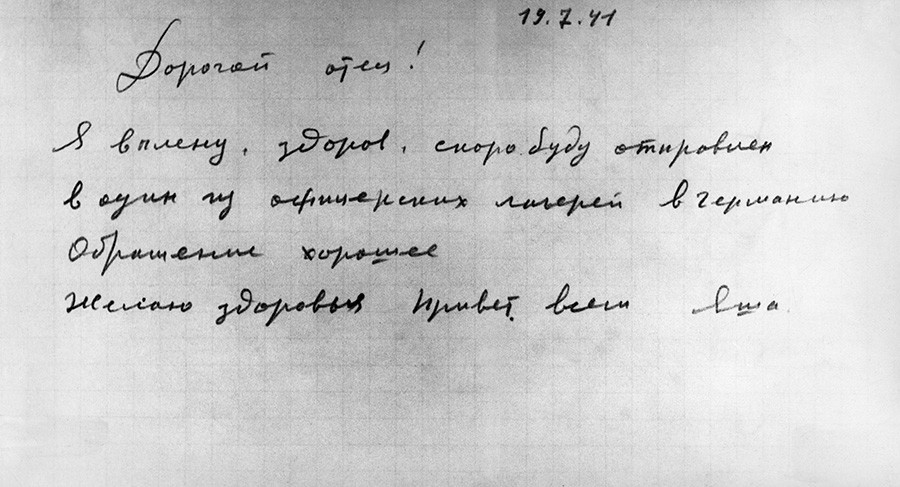 19.7.41
Дорогой отец!
Я в плену, здоров, скоро буду отправлен
в один из офицерских лагерей в Германию
Обращение хорошее
Желаю здоровья Привет всем Яша